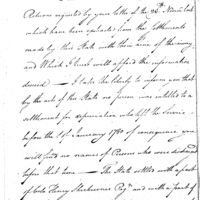 Returns requested by your letter of the 26th Novr. last
which have been extracted from the Settlements
made by this State with their line of the army
and Which I trust will afford the information
desired — I take the liberty to inform you that
by the act of this State no person was entitled to a
settlement for depreciation who left the Service
before the 1st January 1780 of consequence you
will find no names of Persons who were discharged
before that time — The State settled with a part
of Colo. Henry Sherburnes Regt. and with a part of